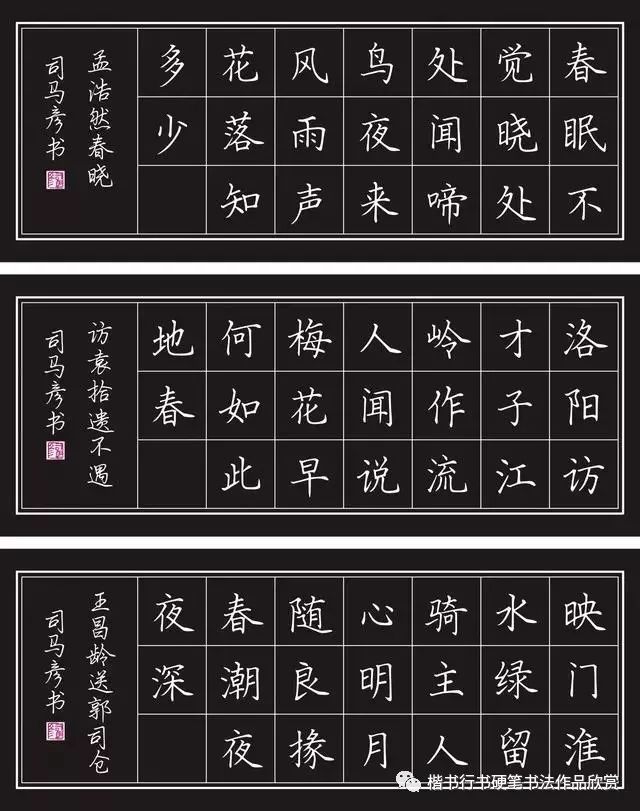 春眠不
觉晓处
处闻啼
鸟夜来
风雨声
花落知
多少
孟浩然春晓
司马彦书
洛阳访
才子江
岭作流
人闻说
梅花早
何如此
地春
访袁拾遗不遇
司马彦书
映门淮
水绿留
骑主人
心明月
随良掾
春潮夜
夜深
王昌龄送郭司仓
司马彦书
楷书行书硬笔书法作品欣赏